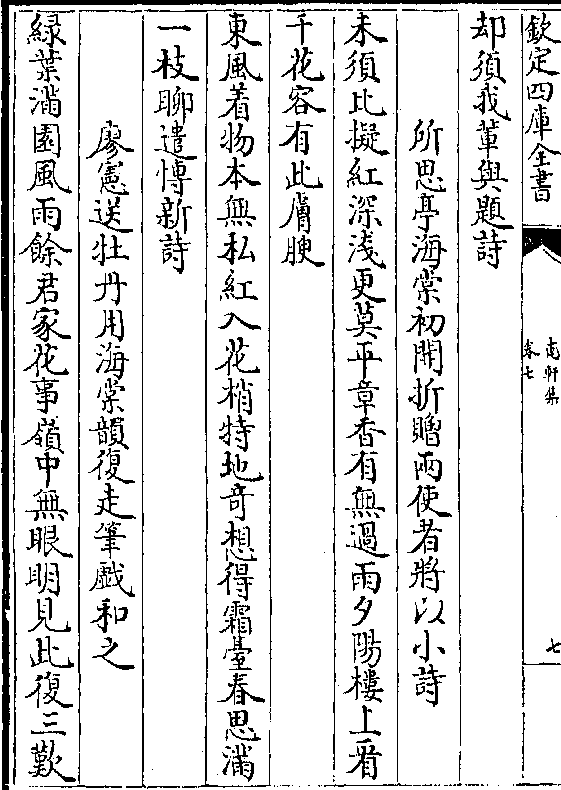 欽定四庫全書
南軒集
卷七
七
却須我輩與題詩
所思亭海棠初開折贈兩使者將以小詩
未須比擬紅深淺更莫平章香有無過雨夕陽樓上看
千花容有此膚腴
東風着物本無私紅入花梢特地奇想得霜臺春思滿
一枝聊遣慱新詩
廖憲送牡丹用海棠韻復走筆戲和之
緑葉滿園風雨餘君家花事嶺中無眼明見此復三歎